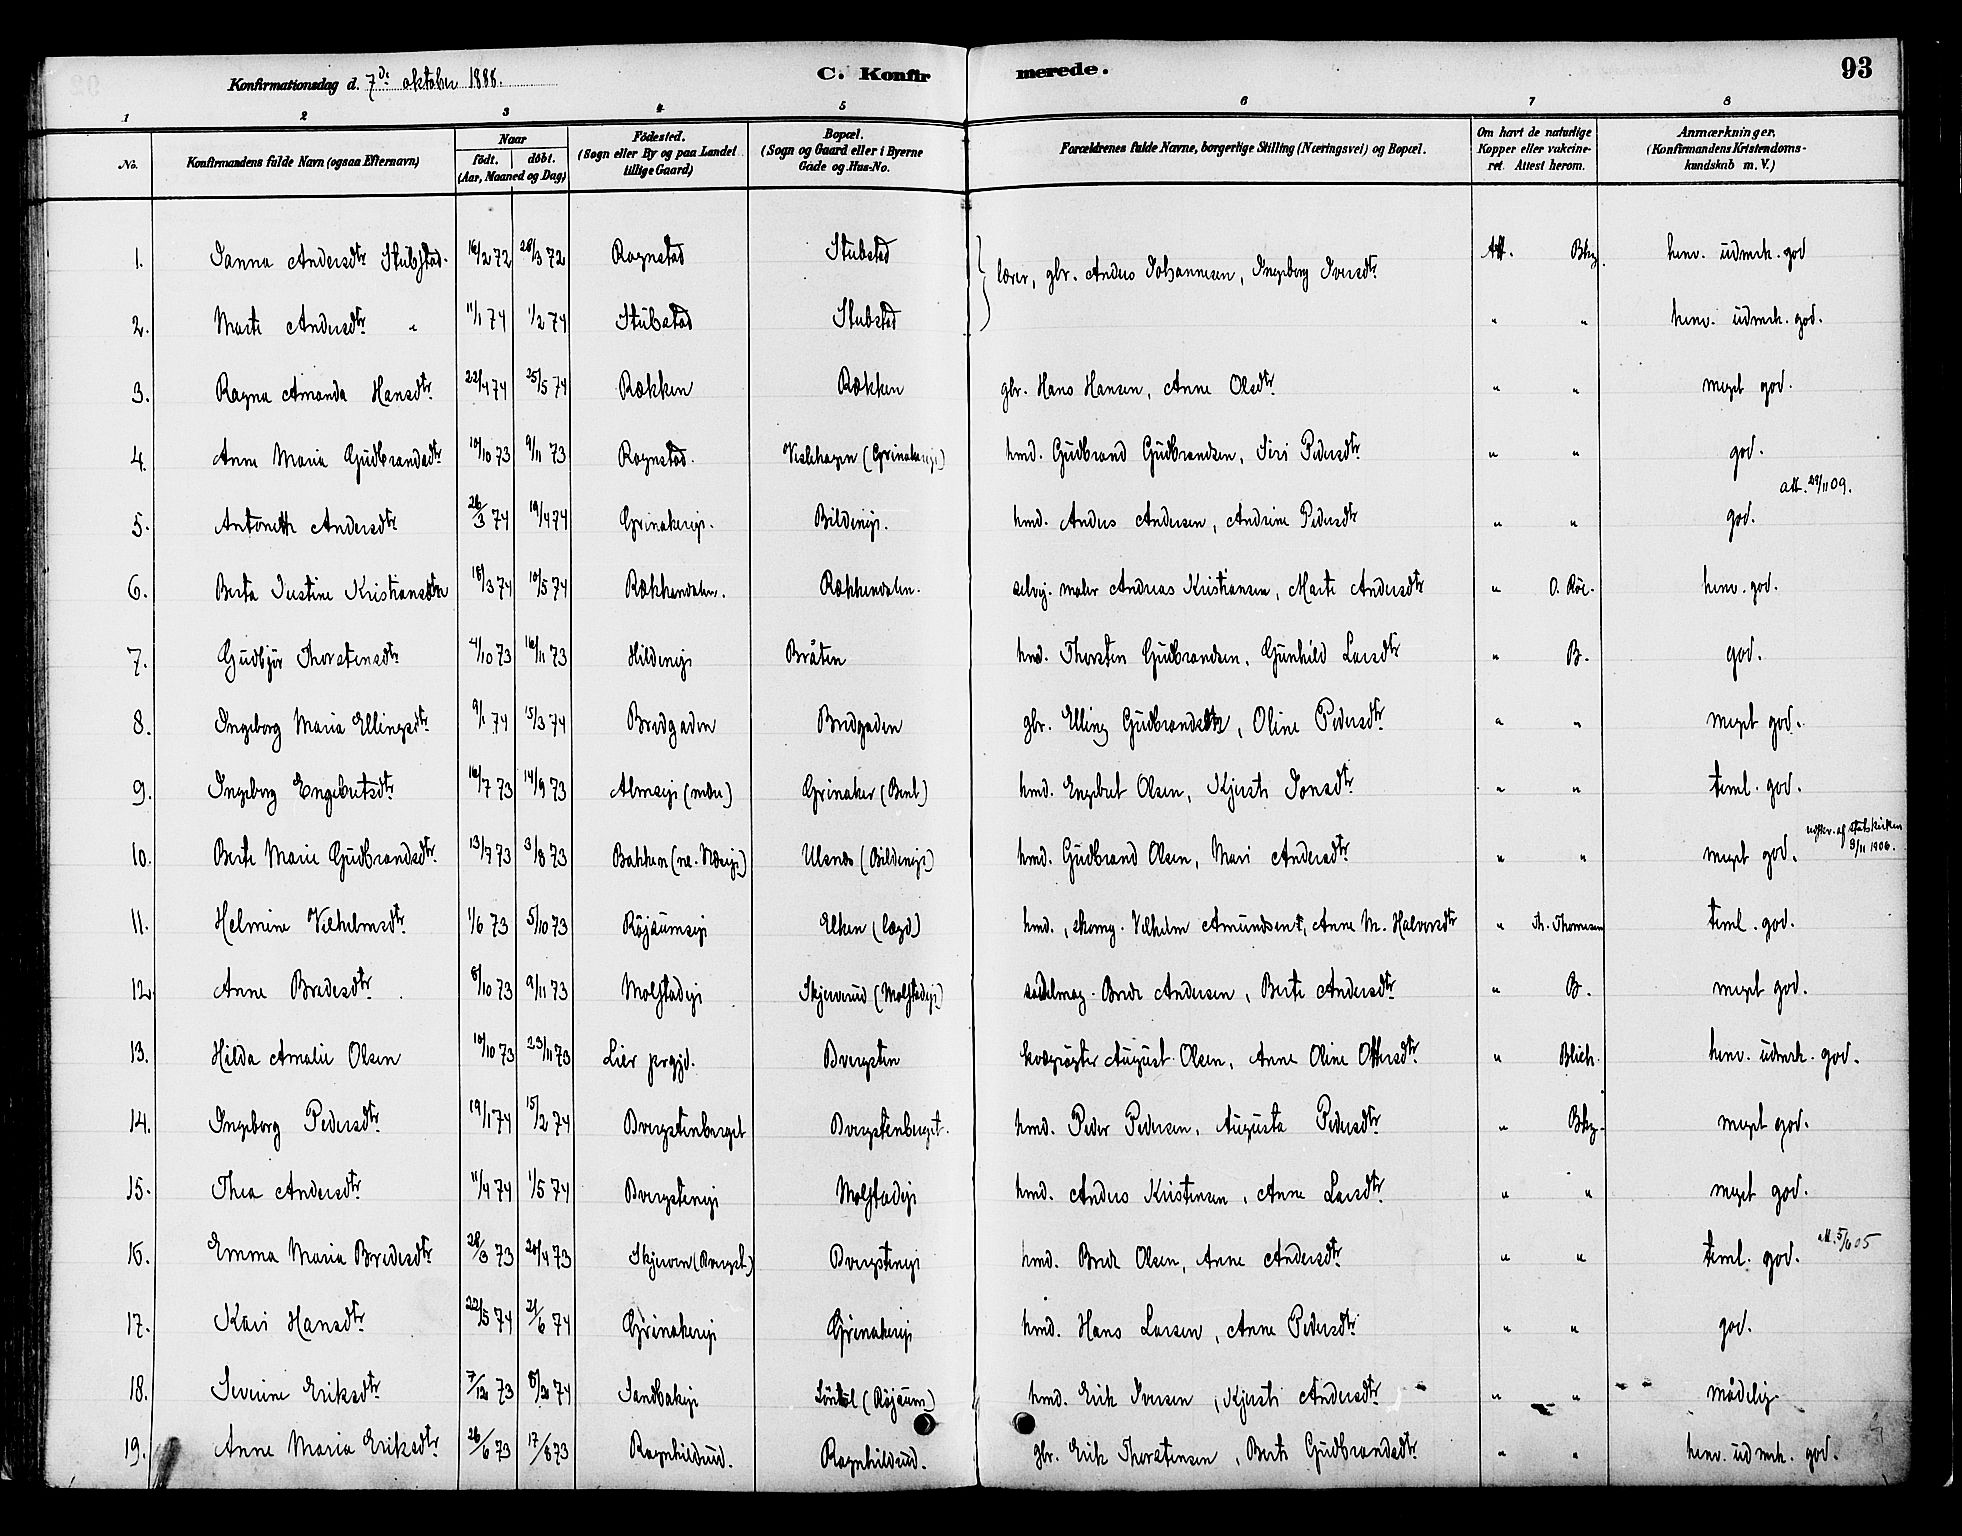 Konfirmationsdag d. 7de oktober 1888. C. Konfirmerede. 93
1 2 3 4 5 6 7 8
No. Konfirmandens fulde Navn (ogsaa Efternavn) Naar født. døbt. (Aar, Maaned og Dag) Fødested. (Sogn eller By og paa Landet tillige Gaard) Bopæl. (Sogn og Gaard eller i Byerne Gade og Hus-No. Forældrenes fulde Navne, borgerlige Stilling (Næringsvei) og Bopæl. Om havt de naturlige Kopper eller vakcineret. Attest herom. Anmærkninger. (Konfirmandens Kristendomskundskab m. V.)
1. Janna Andersdtr Stubstad. 16/2 72 28/3 72 Rognstad Stubstad lærer, gbr. Anders Johannesen, Ingeborg Iversdtr Att. Bkg. henv. üdmrk. god
2. Marte Andersdtr " 11/1 74 1/2 74 Stübstad Stubstad " " henv. üdmrk. god.
3. Ragna Amanda Hansdtr. 22/4 74 25/5 74 Rækken Rækken gbr. Hans Hansen, Anne Olsdtr. " " meget god.
4. Anne Maria Güdbrandsdtr. 10/10 73 9/11 73 Rognstad. (Grinakereje) hmd. Güdbrand Güdbrandsen, Siri Pedersdtr " " god.
5. Antonette Andersdtr 26/3 74 19/4 74 Grinakereje. Bildeneje. hmd. Anders Andersen, Andrine Pedersdtr " " god. att. 29/11 09.
6. Berta Justine Kristiansdtr 18/3 74 10/5 74 Rækkendalen. Rækkendalen. selvej. maler Andreas Kristiansen, Marte Andersdtr " O. Röe. henv. god.
7. Güdbjør Thorstensdtr 4/10 73 16/11 73 Hildeneje Bråten hmd. Thorsten Güdbrandsen, Gunhild Larsdtr " B. god.
8. Ingeborg Maria Ellingsdtr. 9/1 74 15/3 74 Bredgaden Bredgaden gbr. Elling Güdbrandsen, Oline Pedersdtr " " meget god.
9. Ingeborg Engebretsdtr. 16/7 73 14/9 73 Almseje (nedre) Grinaker (Bent.) hmd. Engebret Olsen, Kjersti Jonsdtr. " " teml. god.
10. Berte Marie Güdbrandsdtr. 13/7 73 3/8 73 Bakken (ne. Næseje) Ulsnes (Bildeneje) hmd. Güdbrand Olsen, Mari Andersdtr. " " meget god. udtr. af statskirken 3/11 1906.
11. Helmine Vilhelmsdtr. 1/6 73 5/10 73 Röjsümseje Elken (lægd) hmd., skomg. Vilhelm Amündsen †, Anne M. Halvorsdtr " Th. Thomesen teml. god.
12. Anne Bredesdtr. 8/10 73 9/11 73 Molstadeje Skjerverüd (Molstadeje) sadelmag. Brede Andersen, Berte Andersdtr. " B. meget god.
13. Hilda Amalie Olsen 10/10 73 23/11 73 Lier prgjd. Dvergsten kvægrøgter August Olsen, Anne Oline Ottersdtr. " Blich. henv. üdmrk. god.
14. Ingeborg Pedersdtr. 19/1 74 15/2 74 Dvergstenberget Dvergstenberget. hmd. Peder Pedersen, Augusta Pedersdtr. " Bkg. meget god.
15. Thea Andersdtr. 11/4 74 1/5 74 Dvergsteneje Molstadeje hmd. Anders Kristensen, Anne Larsdtr. " " meget god.
16. Emma Maria Bredesdtr 28/3 73 20/4 73 Skjerven (Dvergst.) Dvergsteneje hmd. Brede Olsen, Anne Andersdtr. " " teml. god. att. 5/6 05
17. Kari Hansdtr. 22/5 74 21/6 74 Grinakereje Grinakereje hmd. Hans Larsen, Anne Pedersdtr. " " god.
18. Severine Eriksdtr. 7/12 73 8/2 74 Sandbakeje (Røjsüm) hmd. Erik Iversen, Kjersti Andersdtr. " " mådelig
19. Anne Maria Eriksdtr 26/6 73 17/8 73 Ragnhildrud. Ragnhildrud. gbr. Erik Thorstensen, Berte Güdbrandsdtr. " " henv. üdmrk. god.